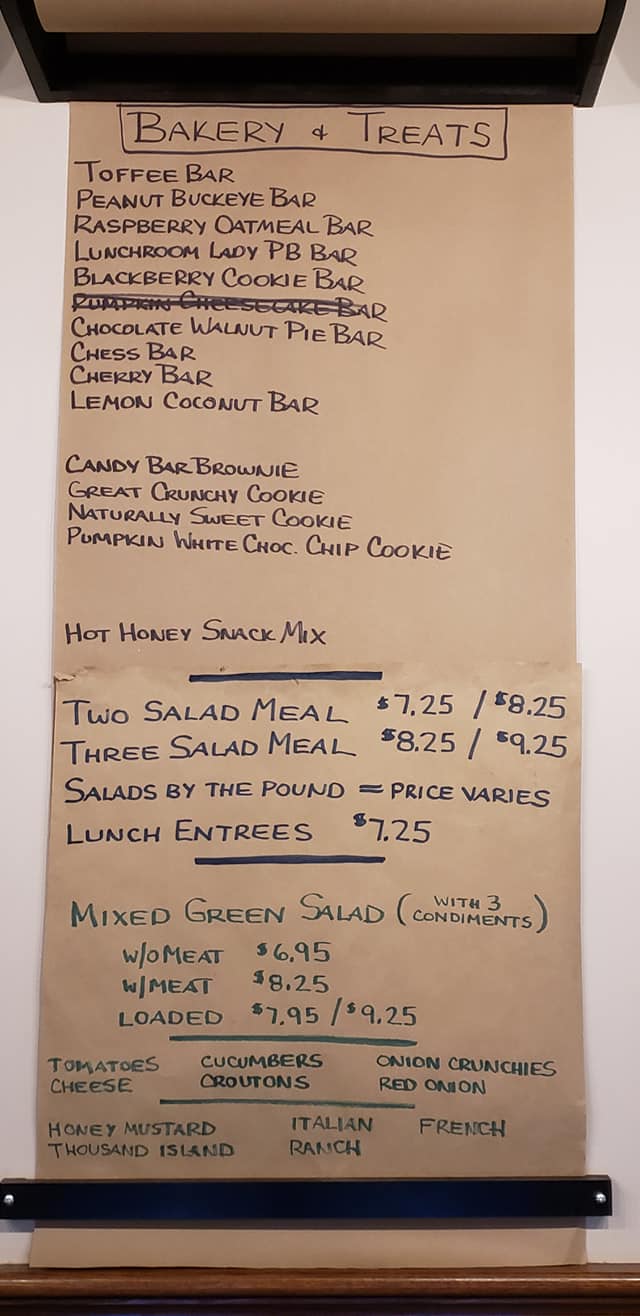 BAKERY & TREATS
TOFFEE BAR
PEANUT BUCKEYE BAR
RASPBERRY OATMEAL BAR
LUNCHROOM LADY PB BAR
BLACKBERRY COOKIE BAR
PUMPKIN CHEESECAKE BAR
CHOCOLATE WALNUT PIE BAR
CHESS BAR
CHERRY BAR
LEMON COCONUT BAR
CANDY BAR BROWNIE
GREAT CRUNCHY COOKIE
NATURALLY SWEET COOKIE
PUMPKIN WHITE CHOC. CHIP COOKIE
HOT HONEY SNACK MIX
TWO SALAD MEAL $7.25 / $8.25
THREE SALAD MEAL $8.25 / $9.25
SALADS BY THE POUND = PRICE VARIES
LUNCH ENTREES $7.25
MIXED GREEN SALAD (WITH 3 CONDIMENTS)
W/O MEAT $6.95
W/MEAT $8.25
LOADED $7.95 / $9.25
TOMATOES CUCUMBERS ONION CRUNCHIES
CHEESE CROUTONS RED ONION
HONEY MUSTARD ITALIAN FRENCH
THOUSAND ISLAND RANCH